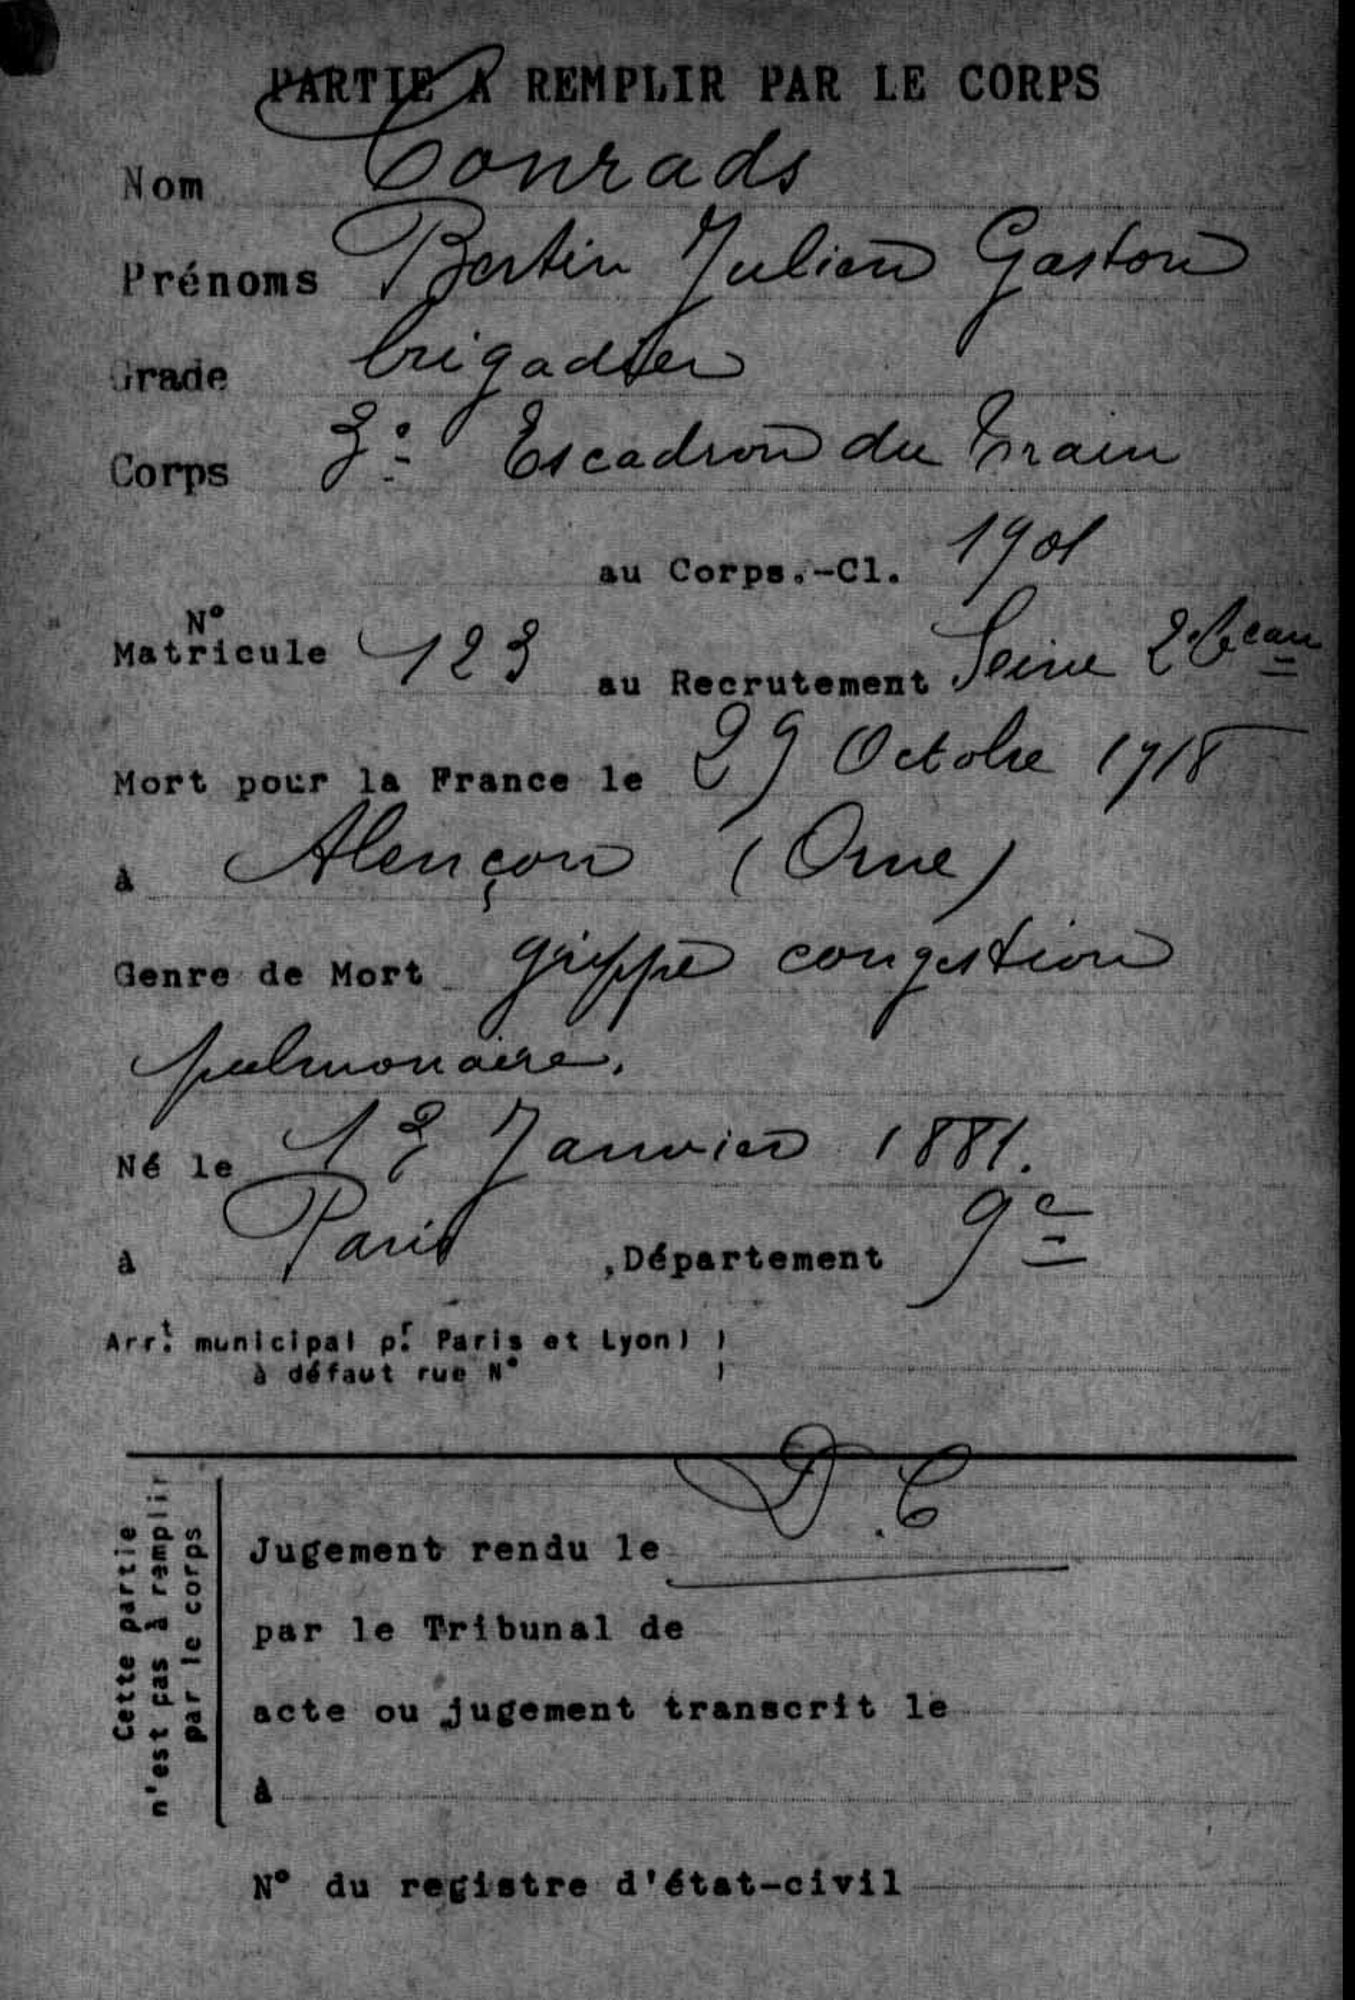 PARTIE A REMPLIR PAR LE CORPS
Nom Conrads
Prénoms Bertin Julien Gaston
Grade brigadier
Corps 3e Escadron du Train
au Corps.-Cl. 1901
N° Matricule 123 au Recrutement Seine 2e Beau
Mort pour la France le 29 Octobre 1918
à Alençon (Orne)
Genre de Mort grippe congestion
pulmonaire.
Né le 13 Janvier 1881.
à Paris ,Département 9e
Arr.t municipal p.r Paris et Lyon)
à défaut rue N°
Cette partie
n'est pas à remplir
par le corps
D.C
Jugement rendu le
par le Tribunal de
acte ou jugement transcrit le
à
N° du registre d'état-civil